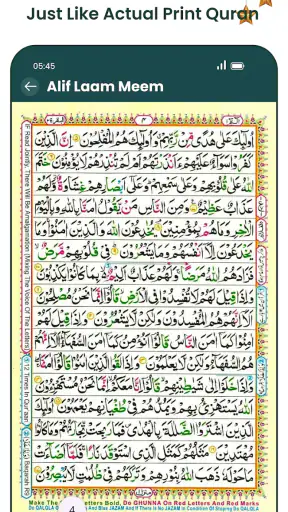 Just Like Actual Print Quran
05:45
Alif Laam Meem
اُولٰٓئِكَ عَلٰى هُدًى مِّنْ رَّبِّهِمْ وَاُولٰٓئِكَ هُمُ الْمُفْلِحُوْنَ اِنَّ الَّذِيْنَ
كَفَرُوْا سَوَآءٌ عَلَيْهِمْ ءَاَنْذَرْتَهُمْ اَمْ لَمْ تُنْذِرْهُمْ لَا يُؤْمِنُوْنَ خَتَمَ
اللّٰهُ عَلٰى قُلُوْبِهِمْ وَعَلٰى سَمْعِهِمْ وَعَلٰٓى اَبْصَارِهِمْ غِشَاوَةٌ وَّلَهُمْ
عَذَابٌ عَظِيْمٌ وَمِنَ النَّاسِ مَنْ يَّقُوْلُ اٰمَنَّا بِاللّٰهِ وَبِالْيَوْمِ
الْاٰخِرِ وَمَا هُمْ بِمُؤْمِنِيْنَ يُخٰدِعُوْنَ اللّٰهَ وَالَّذِيْنَ اٰمَنُوْا وَمَا
يَخْدَعُوْنَ اِلَّآ اَنْفُسَهُمْ وَمَا يَشْعُرُوْنَ فِيْ قُلُوْبِهِمْ مَّرَضٌ
فَزَادَهُمُ اللّٰهُ مَرَضًا وَلَهُمْ عَذَابٌ اَلِيْمٌ بِمَا كَانُوْا يَكْذِبُوْنَ
وَاِذَا قِيْلَ لَهُمْ لَا تُفْسِدُوْا فِي الْاَرْضِ قَالُوْٓا اِنَّمَا نَحْنُ مُصْلِحُوْنَ
اَلَآ اِنَّهُمْ هُمُ الْمُفْسِدُوْنَ وَلٰكِنْ لَّا يَشْعُرُوْنَ وَاِذَا قِيْلَ لَهُمْ
اٰمِنُوْا كَمَآ اٰمَنَ النَّاسُ قَالُوْٓا اَنُؤْمِنُ كَمَآ اٰمَنَ السُّفَهَآءُ اَلَآ اِنَّهُمْ
هُمُ السُّفَهَآءُ وَلٰكِنْ لَّا يَعْلَمُوْنَ وَاِذَا لَقُوا الَّذِيْنَ اٰمَنُوْا قَالُوْٓا اٰمَنَّا
وَاِذَا خَلَوْا اِلٰى شَيٰطِيْنِهِمْ قَالُوْٓا اِنَّا مَعَكُمْ اِنَّمَا نَحْنُ مُسْتَهْزِءُوْنَ
اَللّٰهُ يَسْتَهْزِئُ بِهِمْ وَيَمُدُّهُمْ فِيْ طُغْيَانِهِمْ يَعْمَهُوْنَ اُولٰٓئِكَ
الَّذِيْنَ اشْتَرَوُا الضَّلٰلَةَ بِالْهُدٰى فَمَا رَبِحَتْ تِّجَارَتُهُمْ وَمَا كَانُوْا
مُهْتَدِيْنَ مَثَلُهُمْ كَمَثَلِ الَّذِى اسْتَوْقَدَ نَارًا فَلَمَّآ اَضَآءَتْ
مَا حَوْلَهٗ ذَهَبَ اللّٰهُ بِنُوْرِهِمْ وَتَرَكَهُمْ فِيْ ظُلُمٰتٍ لَّا يُبْصِرُوْنَ
Make The
4
etters Bold, Do GHUNNA On Red Letters And Red Marks
Do QALQLA
And If There Is No JAZAM In Condition Of Stoping Do QALQLA